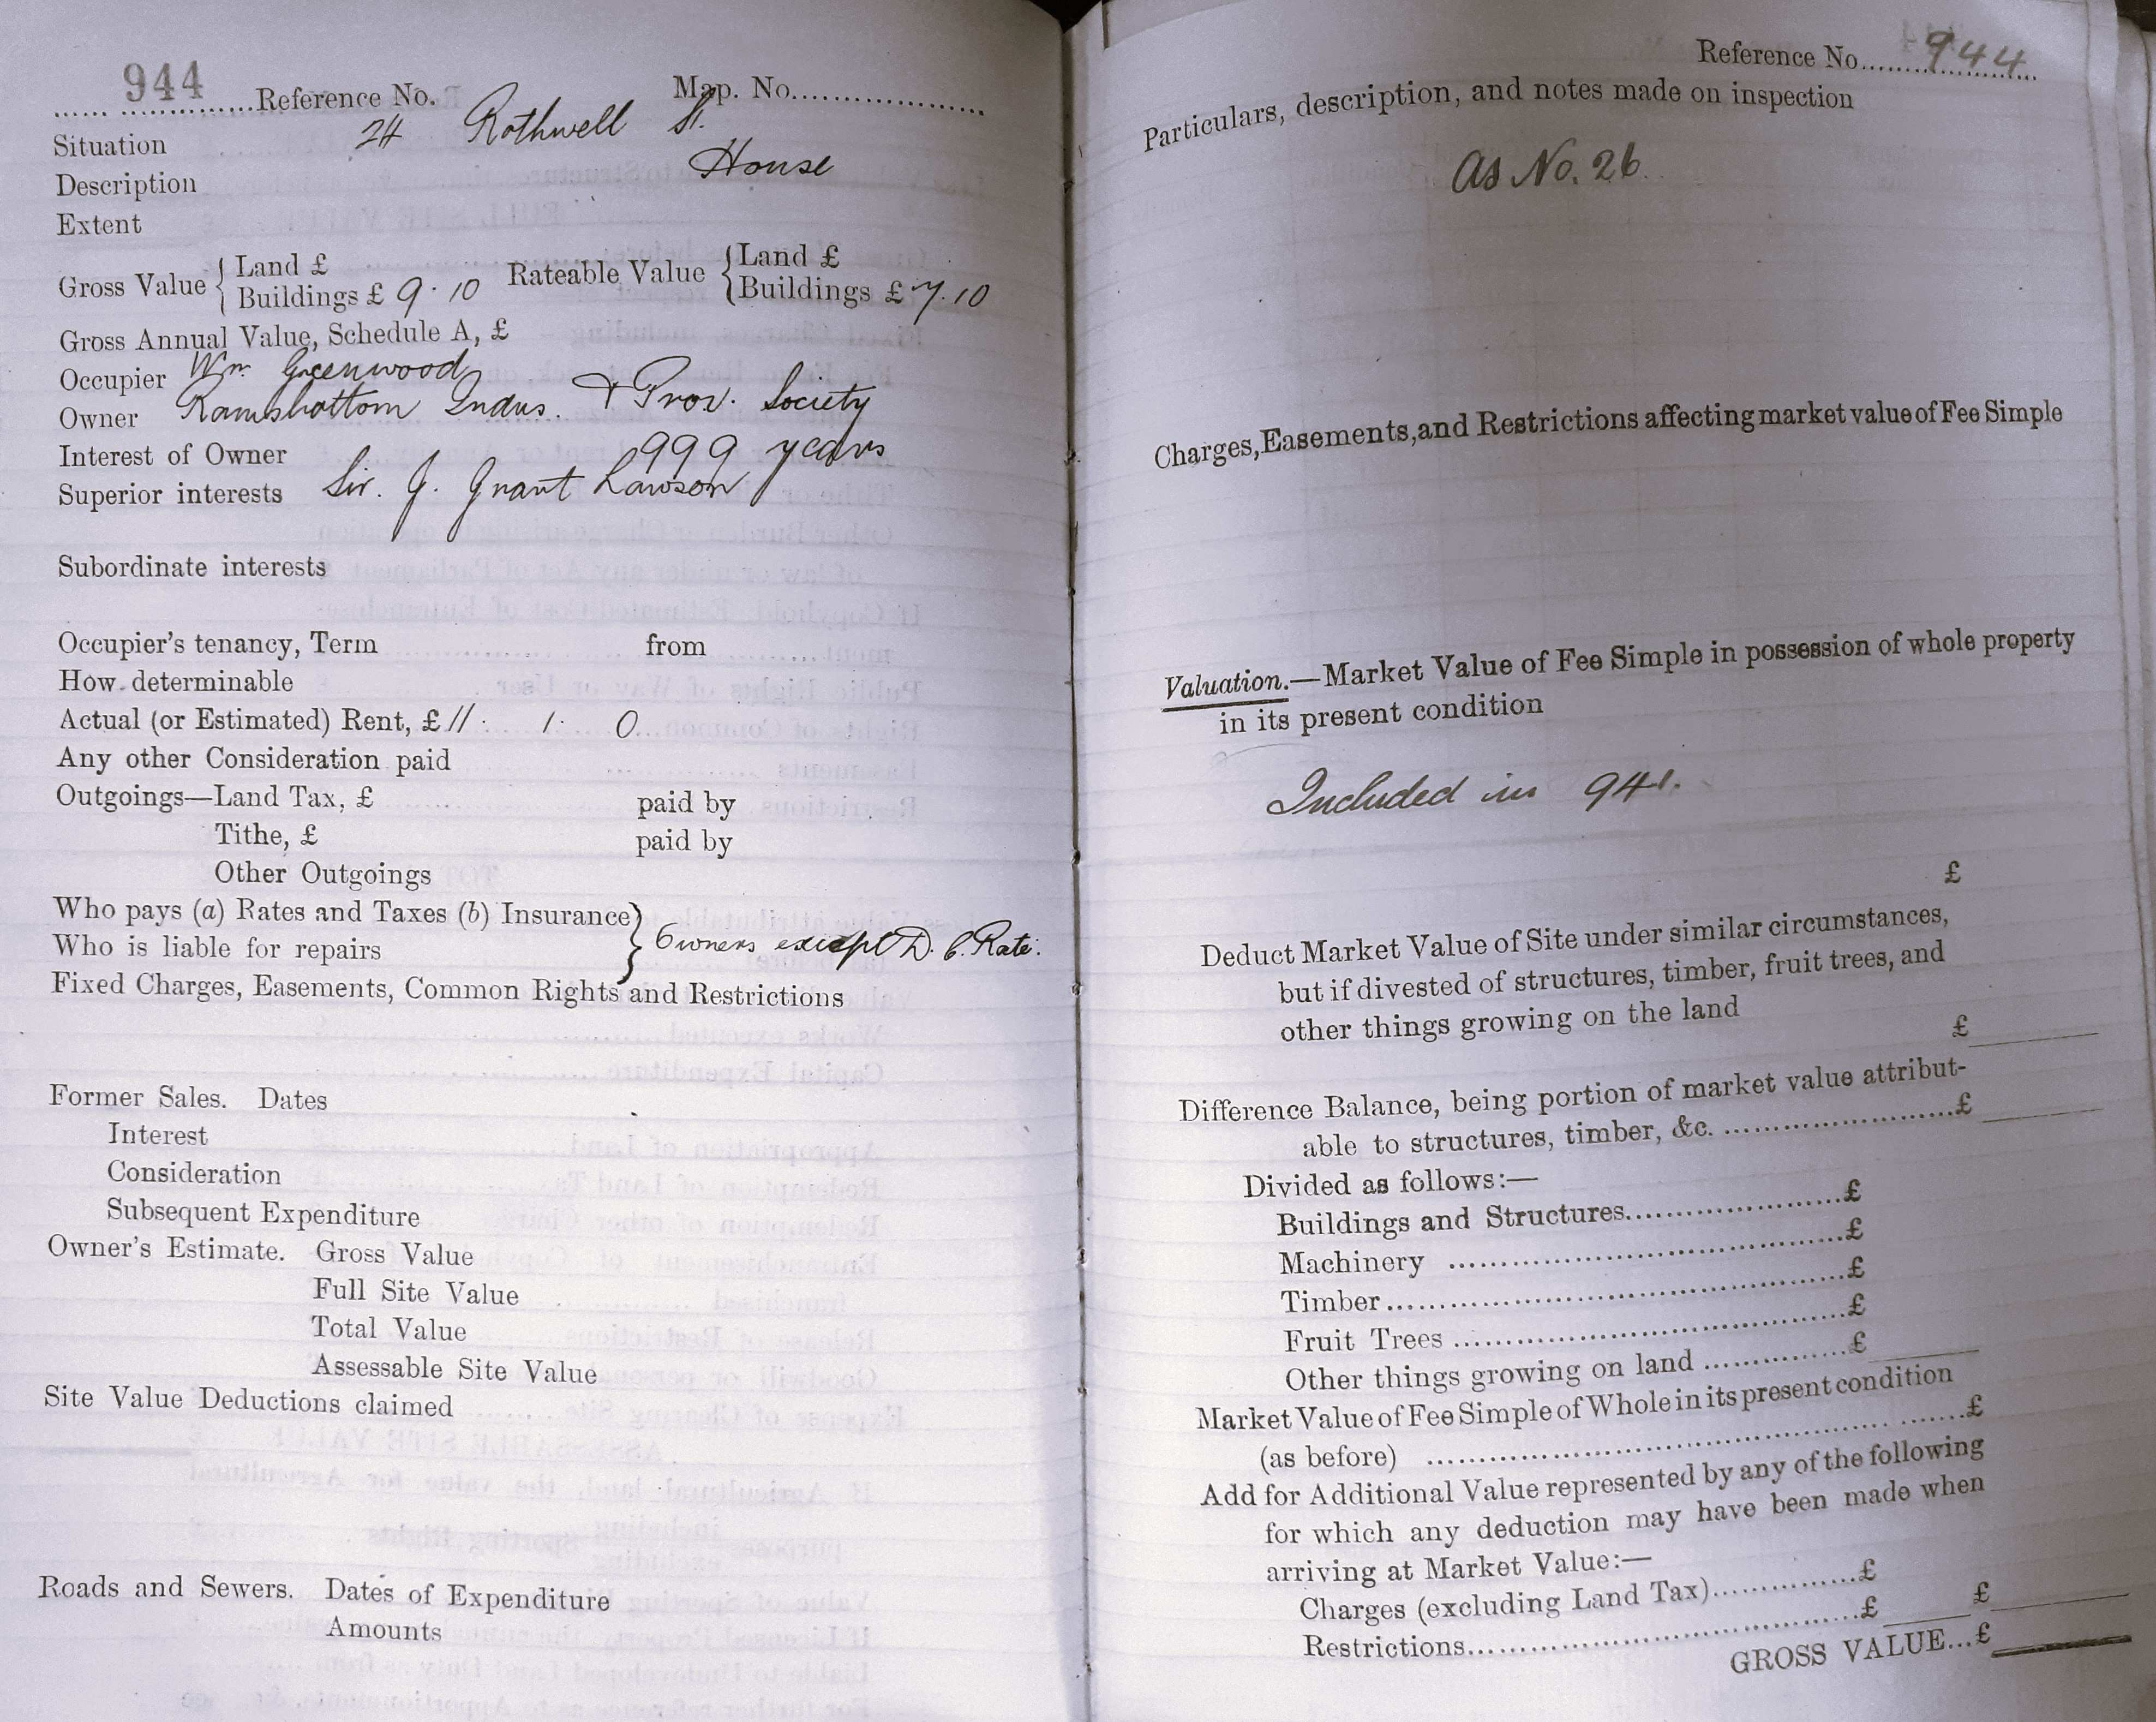 944 Reference No. Map. No.
Situation 24 Rothwell St.
Description House
Extent
Gross Value { Land £ Rateable Value { Land £
Buildings £ 9.10 Buildings £ 7.10
Gross Annual Value, Schedule A, £
Occupier Wm. Greenwood
Owner Ramsbottom Indus. & Prov. Society
Interest of Owner 999 years
Superior interests Sir. J. Grant Lawson
Subordinate interests
Occupier's tenancy, Term from
How determinable
Actual (or Estimated) Rent, £ 11. 1. 0
Any other Consideration paid
Outgoings—Land Tax, £ paid by
Tithe, £ paid by
Other Outgoings
Who pays (a) Rates and Taxes (b) Insurance }
Who is liable for repairs } Owners except D. C. Rate.
Fixed Charges, Easements, Common Rights and Restrictions
Former Sales. Dates
Interest
Consideration
Subsequent Expenditure
Owner's Estimate. Gross Value
Full Site Value
Total Value
Assessable Site Value
Site Value Deductions claimed
Roads and Sewers. Dates of Expenditure
Amounts
Reference No. 944
Particulars, description, and notes made on inspection
As No. 26.
Charges, Easements, and Restrictions affecting market value of Fee Simple
Valuation.—Market Value of Fee Simple in possession of whole property
in its present condition
Included in 941.
£
Deduct Market Value of Site under similar circumstances,
but if divested of structures, timber, fruit trees, and
other things growing on the land
£
Difference Balance, being portion of market value attribut-
able to structures, timber, &c. £
Divided as follows:—
Buildings and Structures £
Machinery £
Timber £
Fruit Trees £
Other things growing on land £
Market Value of Fee Simple of Whole in its present condition
(as before) £
Add for Additional Value represented by any of the following
for which any deduction may have been made when
arriving at Market Value:—
Charges (excluding Land Tax) £
Restrictions £ £
GROSS VALUE...£